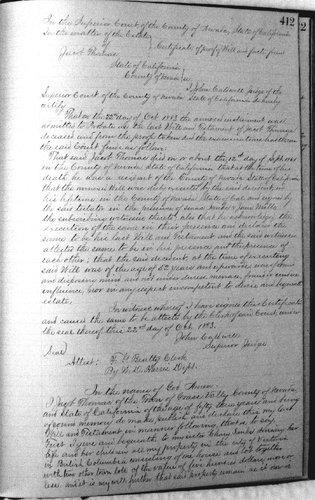 412
In the Superior Court of the County of Nevada, State of California
In the matter of the Estate
of
Jacob Thomas
Certificate of Proof of Will and facts found
State of California
County of Nevada
I, John Caldwell Judge of the
Superior Court of the County of Nevada State of California do hereby
certify
That on the 22nd day of Oct 1883 the annexed instrument was
admitted to Probate as the Last Will and Testament of Jacob Thomas
deceased and from the proofs taken and the examination had therein
the said Court finds as follows:
That said Jacob Thomas died on or about the day of Sept 1883
in the County of Nevada State of California that at the time of his
death he was a resident of the County of Nevada State of California
that the annexed Will was duly executed by the said decedent in
his lifetime in the County of Nevada State of Cal. and signed by
the said testator in the presence of
the subscribing witnesses thereto also that he acknowledged the
execution of the same in their presence and declared the
same to be his last Will and Testament and the said witnesses
attested the same to be in his presence and the presence of
each other; that the said decedent at the time of executing
said Will was of the age of 52 years and upwards was of sound
and disposing mind and not under duress, menace, fraud or undue
influence, nor in any respect incompetent to devise and bequeath
estate.
In witness whereof I have signed this Certificate
and caused the same to be attested by the Clerk of said Court under
the seal thereof this 22nd day of Oct. 1883.
John Caldwell
Superior Judge
Seal
Attest: Beatty Clerk
By Dept.
In the name of God Amen.
I Jacob Thomas of the Town of Grass Valley County of Nevada,
and State of California of the age of fifty two years and being
of sound memory do make publish and declare this my last
Will and Testament in manner following, that is to say
First I give and bequeath to during her
life and her children all my property in the city of Victoria
in British Columbia consisting of one house and lot together
with two other town lots of the value of five hundred dollars more or
less and it is my will further that said property remain as it